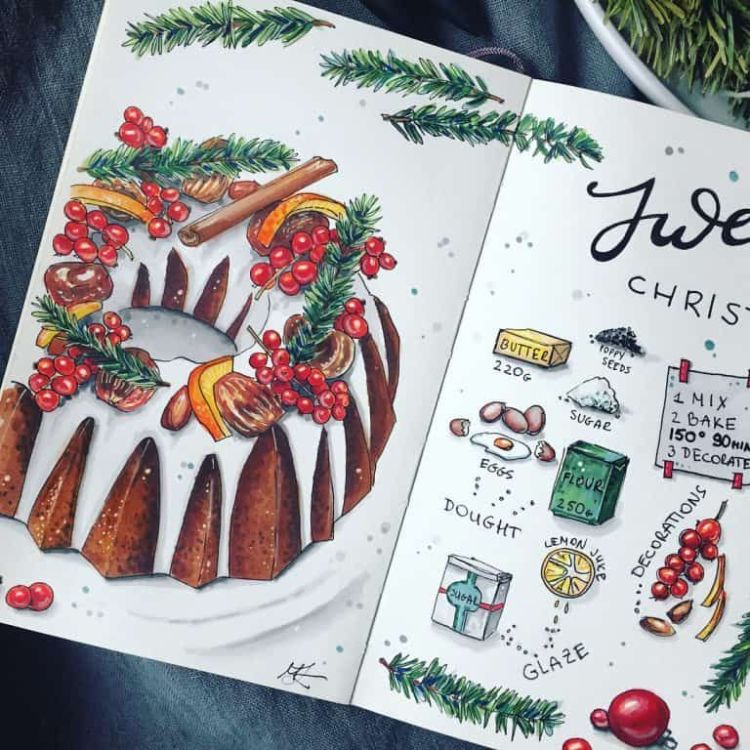 Swe
CHRIS
BUTTER
220G
POPPY
SEEDS
SUGAR
EGGS
FLOUR
250G
DOUGHT
1 MIX
2 BAKE
150° 90MIN
3 DECORATE
DECORATIONS
LEMON JUICE
SUGAR
GLAZE